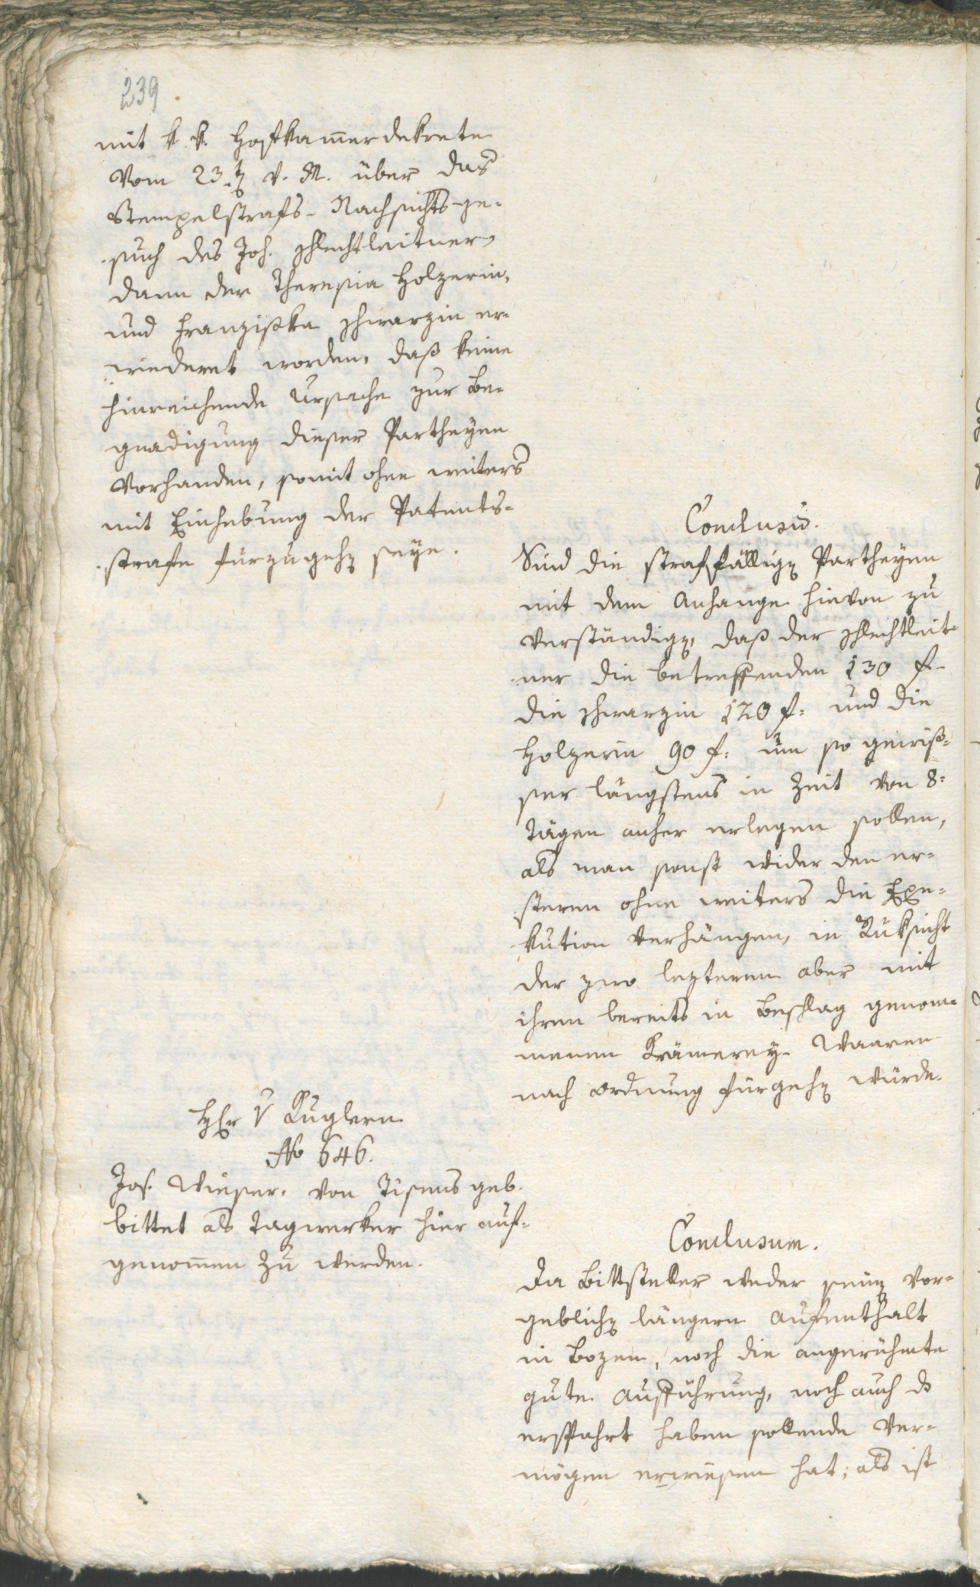 239
mit k. k. Hofkam̅erdekrete
vom 23.ten v. M. über das
Stempelstrafs-Nachsichts-ge-
such des Joh. Schlechtleitner,
dann der Theresia Holzerin,
und Franziska Schwarzin er-
wiedert worden, daß keine
hinreichende Ursache zur Be-
gnadigung dieser Partheyen
vorhanden, somit ohne weiters
mit Einhebung der Patents-
strafe fürzugehen seye.
Conclusū.
Sind die straffälligen Partheyen
mit dem Anhange hievon zu
verständigen, daß der Schlechtleit-
ner die betreffenden 130 f.
die Schwarzin 120 f. und die
Holzerin 90 f. um so gewiß-
ser längstens in Zeit von 8.
Tägen anher erlegen sollen,
als man sonst wider den er-
steren ohne weiters die Exe-
kution verhängen, in Rüksicht
der zwo lezteren aber mit
ihren bereits in Beschlag genom-
menen Krämerey-Waaren
nach Ordnung fürgehen würde.
Hr. v Kuglern
No 646.
Jos. Wieser, von Tisens geb.
bittet als Tagwerker hier auf-
genom̅en zu werden.
Conclusum.
Da Bittsteller weder seinen vor-
geblichen längern Aufenthalt
in Bozen, noch die angerühmte
gute Aufführung, noch auch ds
erspahrt haben sollende Ver-
mögen erwiesen hat; als ist